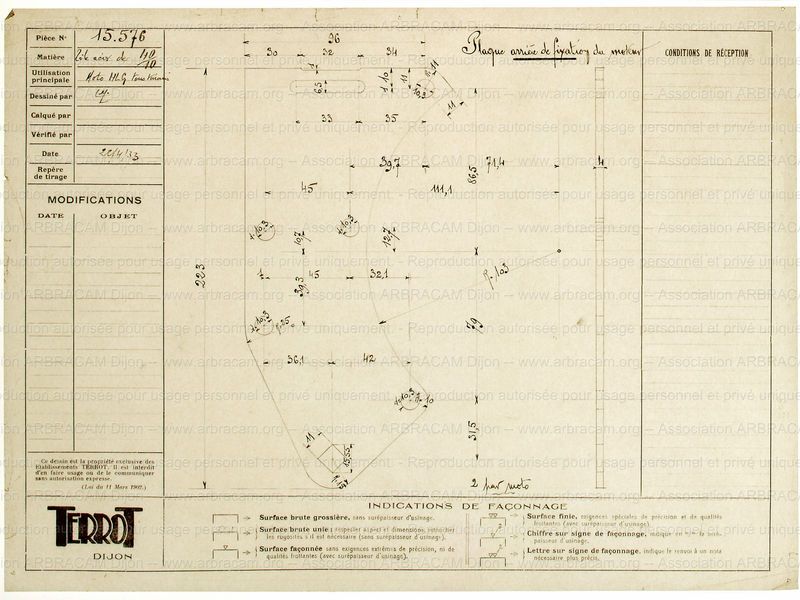 Pièce N° 15.576
Matière Tôle noire de 40/10
Utilisation principale Moto HLG
Dessiné par
Calqué par
Vérifié par
Date 22/4/33
Repère de tirage
MODIFICATIONS
DATE OBJET
Ce dessin est la propriété exclusive des
Etablissements TERROT. Il est interdit
d'en faire usage ou de le communiquer
sans autorisation expresse.
(Loi du 11 Mars 1902.)
TERROT
DIJON
Plaque arrière de fixation du moteur
CONDITIONS DE RÉCEPTION
96
30 32 34
6,5
11
33 35
39,7 71,4 4
86,5
45 111,1
10,3 10,3
10,7 12,7
223
45 32,1
39,3
R. 103
10,3
79
36,1 42
10,3
31,5
11
15,55
2 par moto
INDICATIONS DE FAÇONNAGE
Surface brute grossière, sans surépaisseur d'usinage.
Surface brute unie: respecter aspect et dimensions, retoucher
les rugosités s'il est nécessaire (sans surépaisseur d'usinage).
Surface façonnée sans exigences extrêmes de précision, ni de
qualités frottantes (avec surépaisseur d'usinage).
Surface finie, exigences spéciales de précision et de qualités
frottantes (avec surépaisseur d'usinage).
Chiffre sur signe de façonnage, indique en m/m la surépaisseur d'usinage.
Lettre sur signe de façonnage, indique le renvoi à un nota
nécessaire plus précis.
www.arbracam.org – Association ARBRACAM Dijon – www.arbracam.org – Association ARBRACAM Dijon
Reproduction autorisée pour usage personnel et privé uniquement.